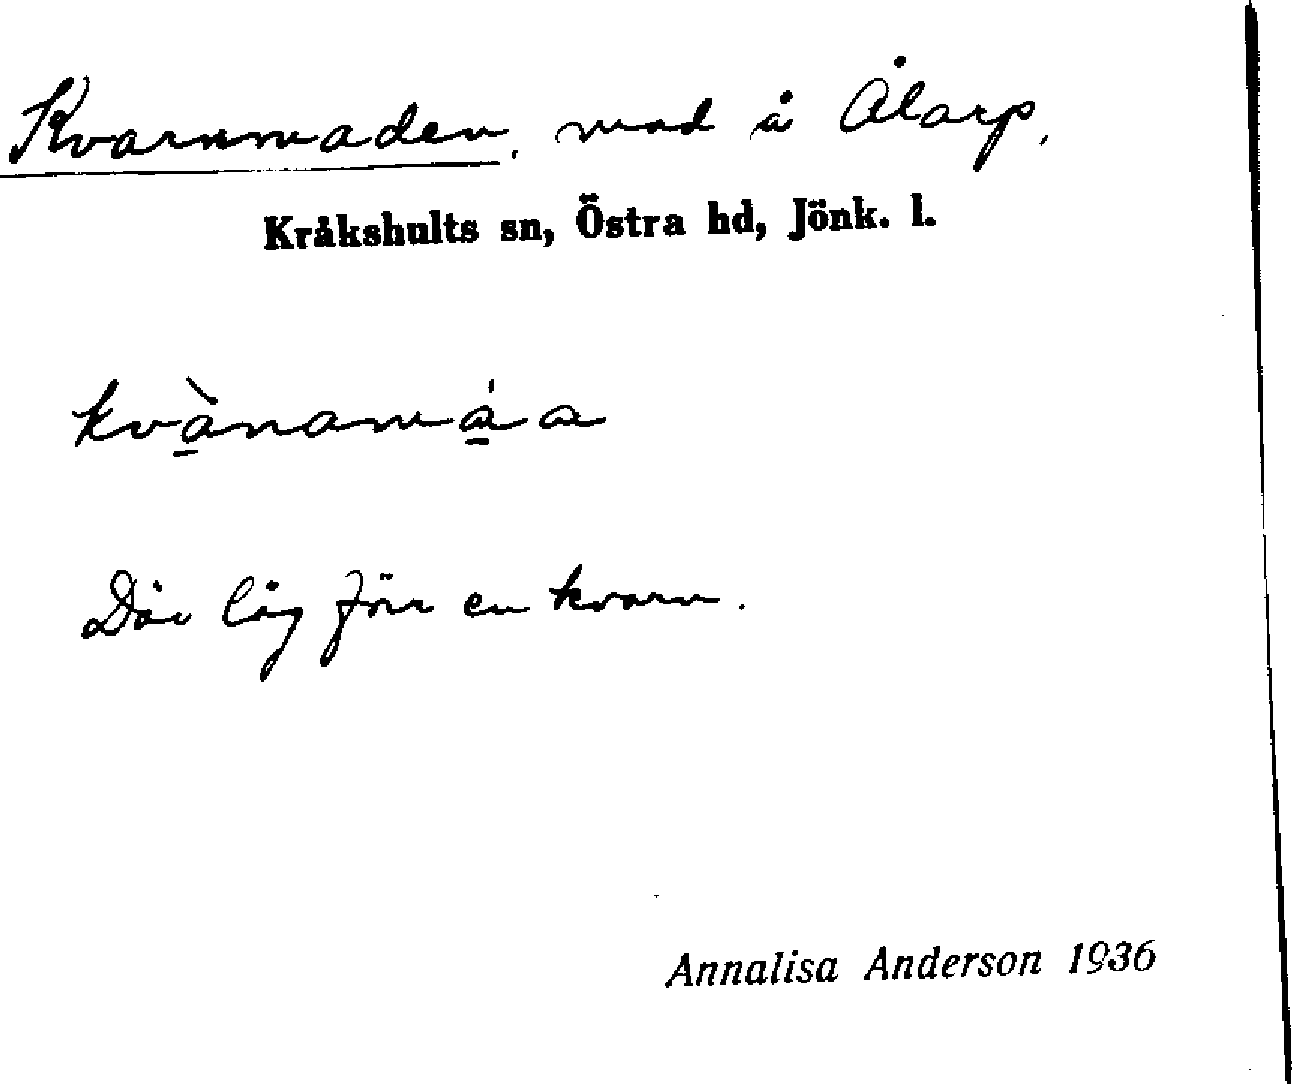 Kvarnmaden, mad å Ålarp,
Kråkshults sn, Östra hd, Jönk. l.
kvà̱namá̱a
Där låg förr en kvarn.
Annalisa Anderson 1936